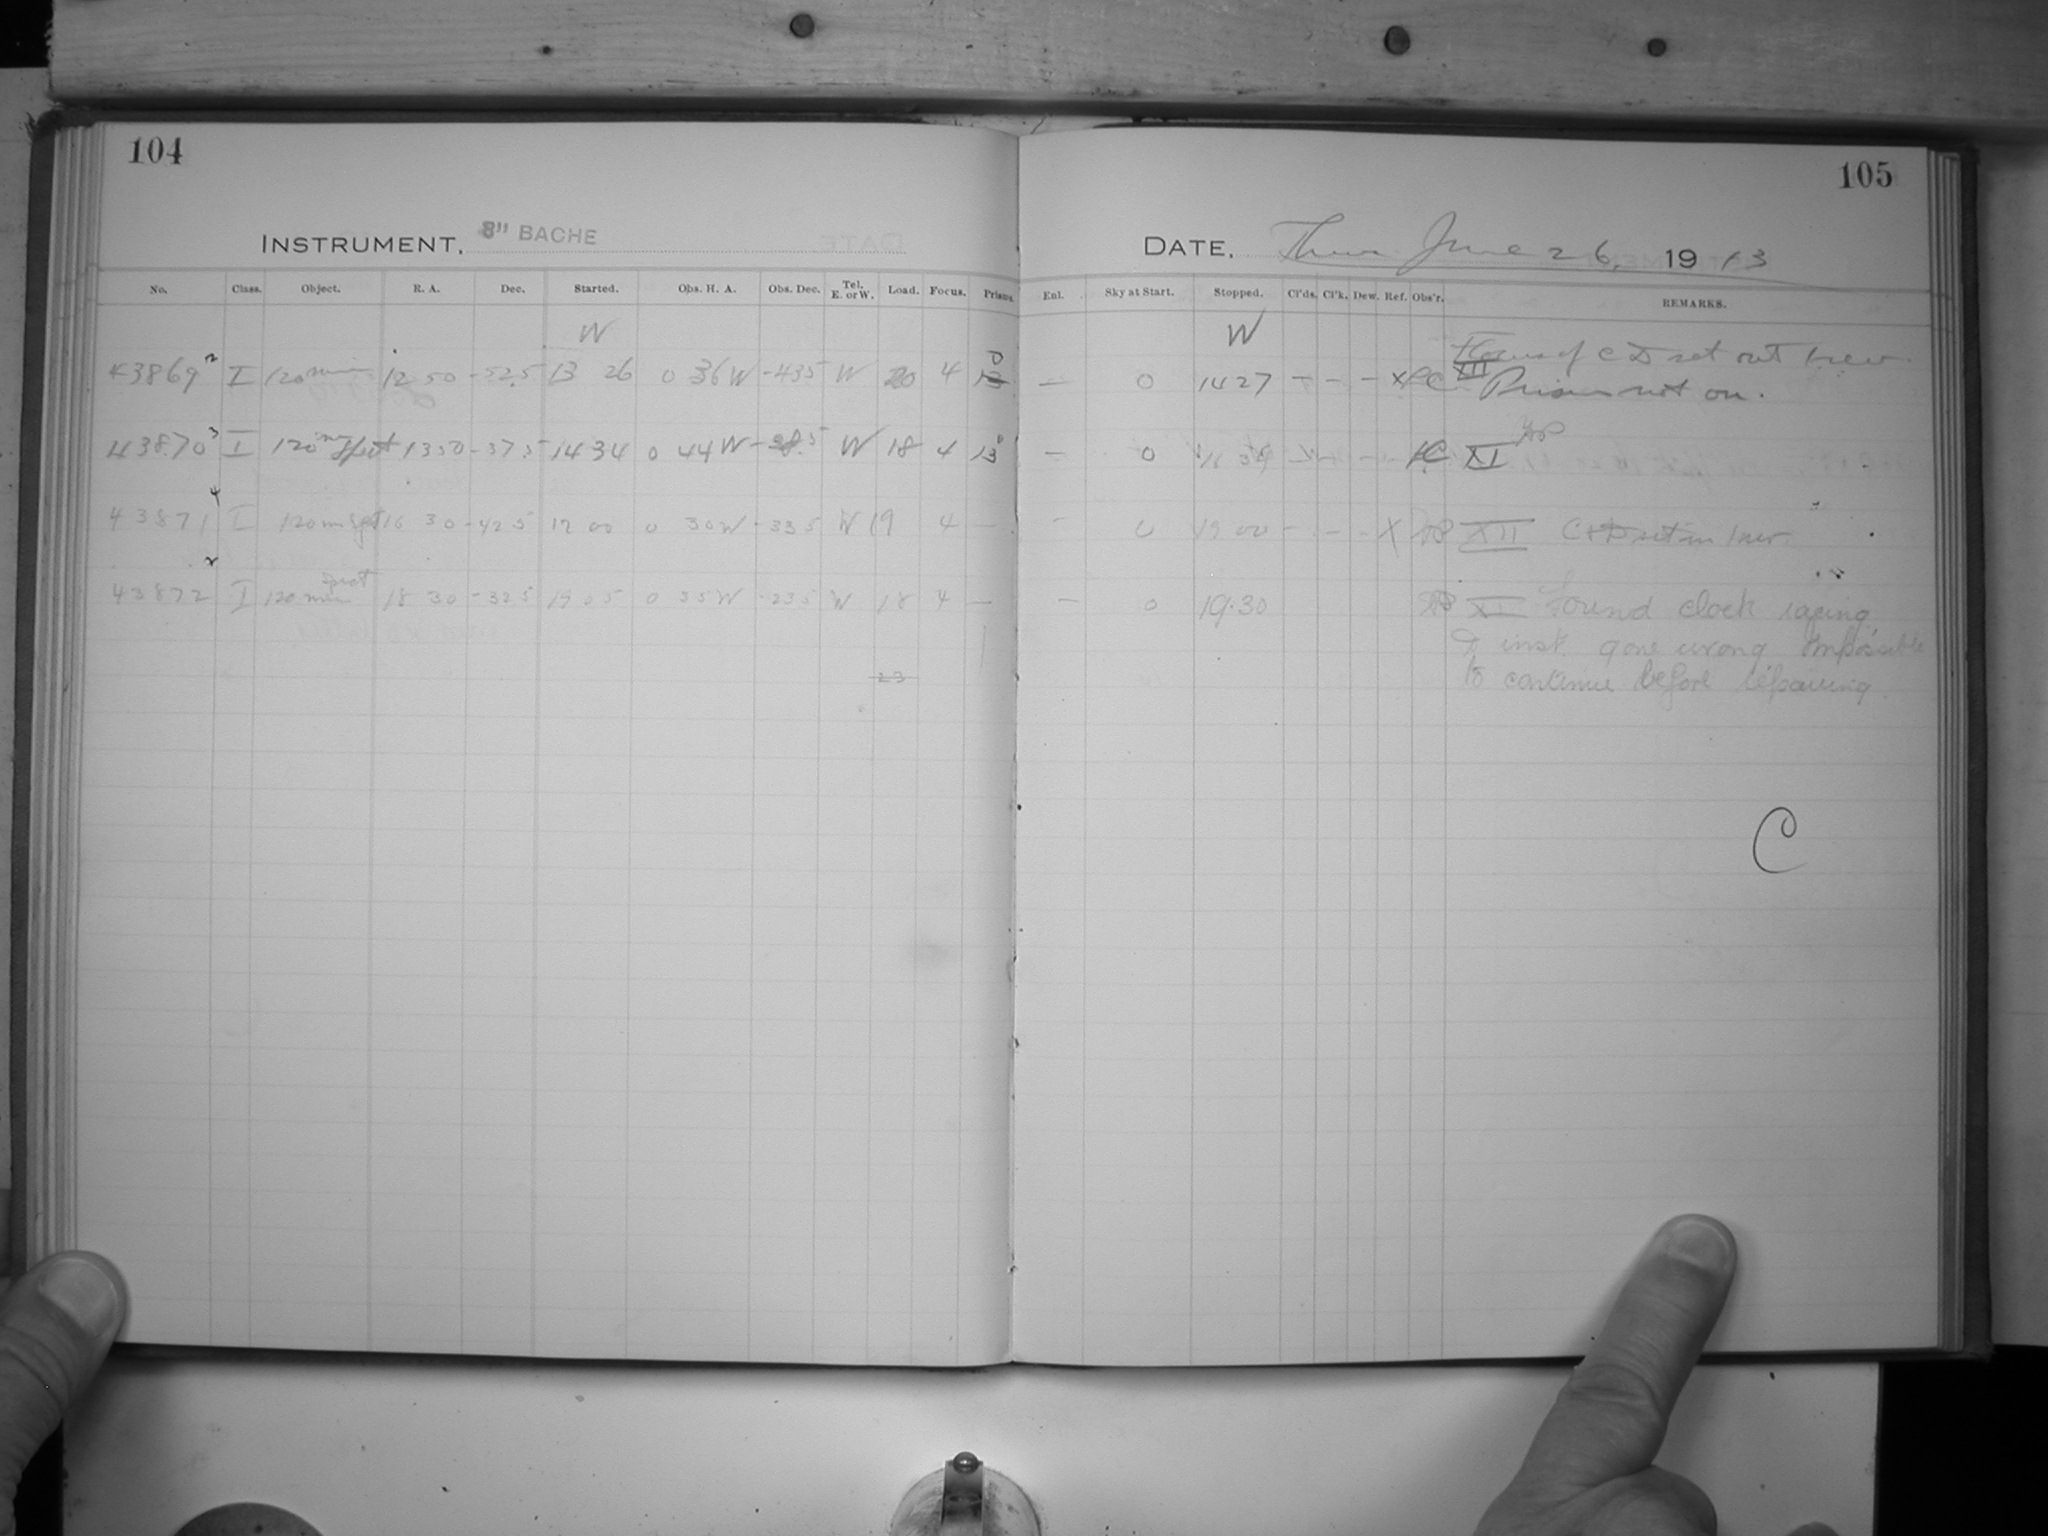 104
105
INSTRUMENT, 8" BACHE
DATE, Thur June 26, 1913
No. Class. Object. R. A. Dec. Started. Obs. H. A. Obs. Dec. Tel. E. or W. Load. Focus. Prisms.
Enl. Sky at Start. Stopped. Cl'ds. Cl'k. Dew. Ref. Obs'r. REMARKS.
W W
43869 2 I 120 min 12 50 -52.5 13 26 0 36 W -43.5 W 20 4 0 — 0 14 27 – – – X C XII of C D set out 1 rev
Prism not on.
43870 3 I 120 m Spect 13 50 -37.5 14 34 0 44 W W 18 4 13 — 0 C XI
43871 4 I 120 m Spt 16 30 -42 5 17 00 0 30 W -33 5 W 19 4 — – 0 19 00 – – – X XII C+D set in 1 rev.
43872 2 I 120 min Spect 18 30 -32 5 19 05 0 35 W -23 5 W 18 4 — – 0 19.30 XI Found clock racing
& inst. gone wrong Impossible
23
to continue before repairing.
C